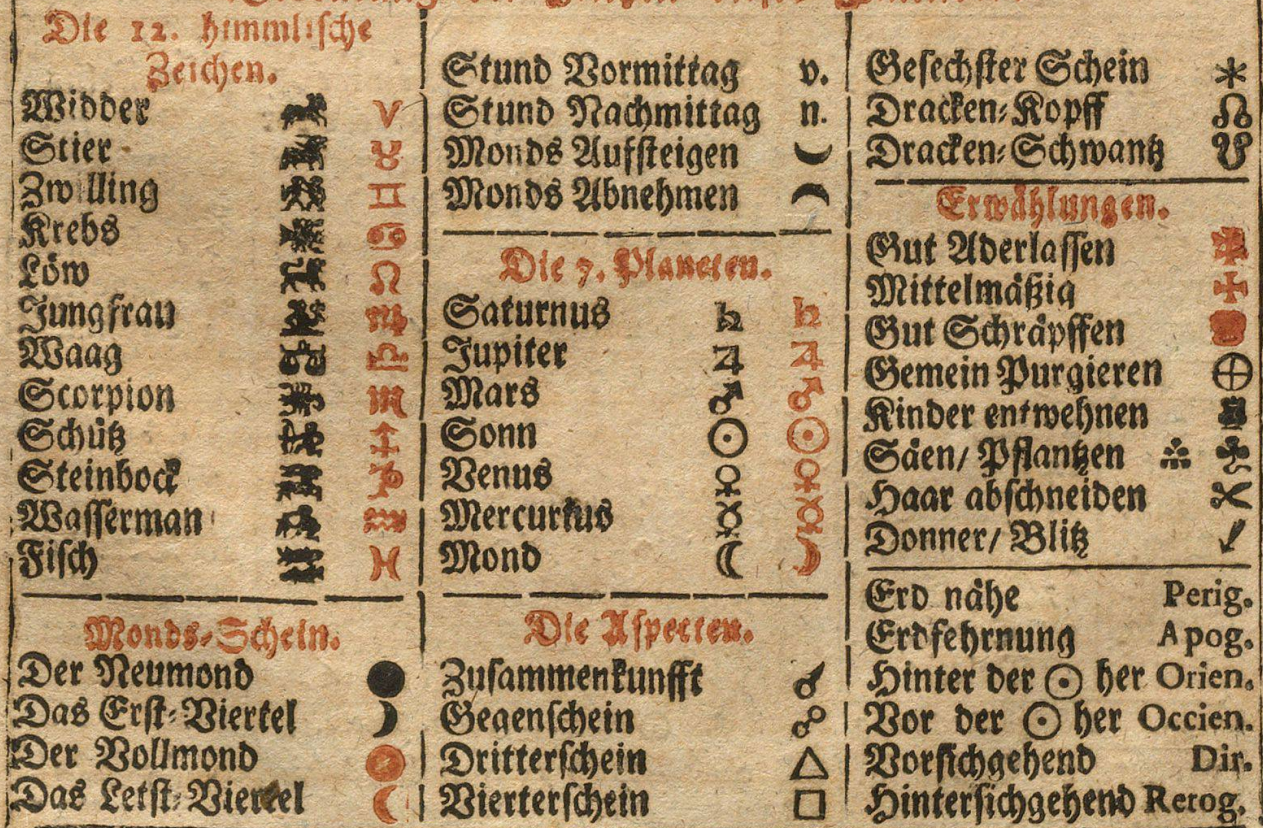 Die 12. himmlische
Zeichen.
Widder ♈
Stier ♉
Zwilling ♊
Krebs ♋
Löw ♌
Jungfrau ♍
Waag ♎
Scorpion ♏
Schütz ♐
Steinbock ♑
Wasserman ♒
Fisch ♓
Monds-Schein.
Der Neumond ●
Das Erst-Viertel ☽
Der Vollmond
Das Letst-Viertel ☾
Stund Vormittag v.
Stund Nachmittag n.
Monds Aufsteigen
Monds Abnehmen
Die 7. Planeten.
Saturnus ♄ ♄
Jupiter ♃ ♃
Mars ♂ ♂
Sonn ☉ ☉
Venus ♀ ♀
Mercurius ☿ ☿
Mond ☾ ☽
Die Aspecten.
Zusammenkunfft ☌
Gegenschein ☍
Dritterschein △
Vierterschein □
Gesechster Schein ⚹
Dracken-Kopff ☊
Dracken-Schwantz ☋
Erwählungen.
Gut Aderlassen
Mittelmäßig
Gut Schräpffen
Gemein Purgieren ⊕
Kinder entwehnen
Säen/ Pflantzen
Haar abschneiden
Donner/ Blitz
Erd nähe Perig.
Erdfehrnung Apog.
Hinter der ☉ her Orien.
Vor der ☉ her Occien.
Vorsichgehend Dir.
Hintersichgehend Retog.